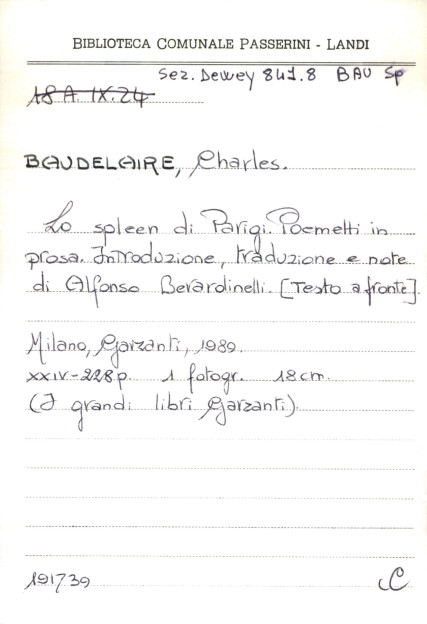 BIBLIOTECA COMUNALE PASSERINI - LANDI
Sez. Dewey 841.8 BAU Sp
18 A. IX. 24
BAUDELAIRE, Charles.
Lo spleen di Parigi. Poemetti in
prosa. Introduzione, traduzione e note
di Alfonso Berardinelli. [Testo a fronte].
Milano, Garzanti, 1989.
XXIV-228 p. 1 fotogr. 18 cm.
(I grandi libri Garzanti).
191739 C